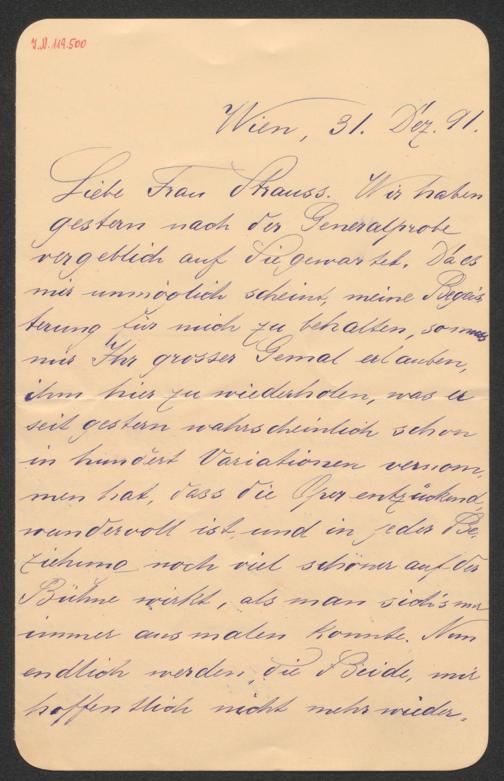 I.N. 119.500
Wien, 31. Dez. 91.
Liebe Frau Strauss. Wir haben
gestern nach der Generalprobe
vergeblich auf Sie gewartet. Da es
mir unmöglich scheint, meine Begeis
terung für mich zu behalten, so muss
mir Ihr grosser Gemal erlauben,
ihm hier zu wiederholen, was er
seit gestern wahrscheinlich schon
in hundert Variationen vernom,
men hat, dass die Oper entzückend,
wundervoll ist, und in jeder Be,
ziehung noch viel schöner auf der
Bühne wirkt, als man sich's nur
immer ausmalen konnte. Nun
endlich werden, die Beide, mir
hoffentlich nicht mehr wieder,